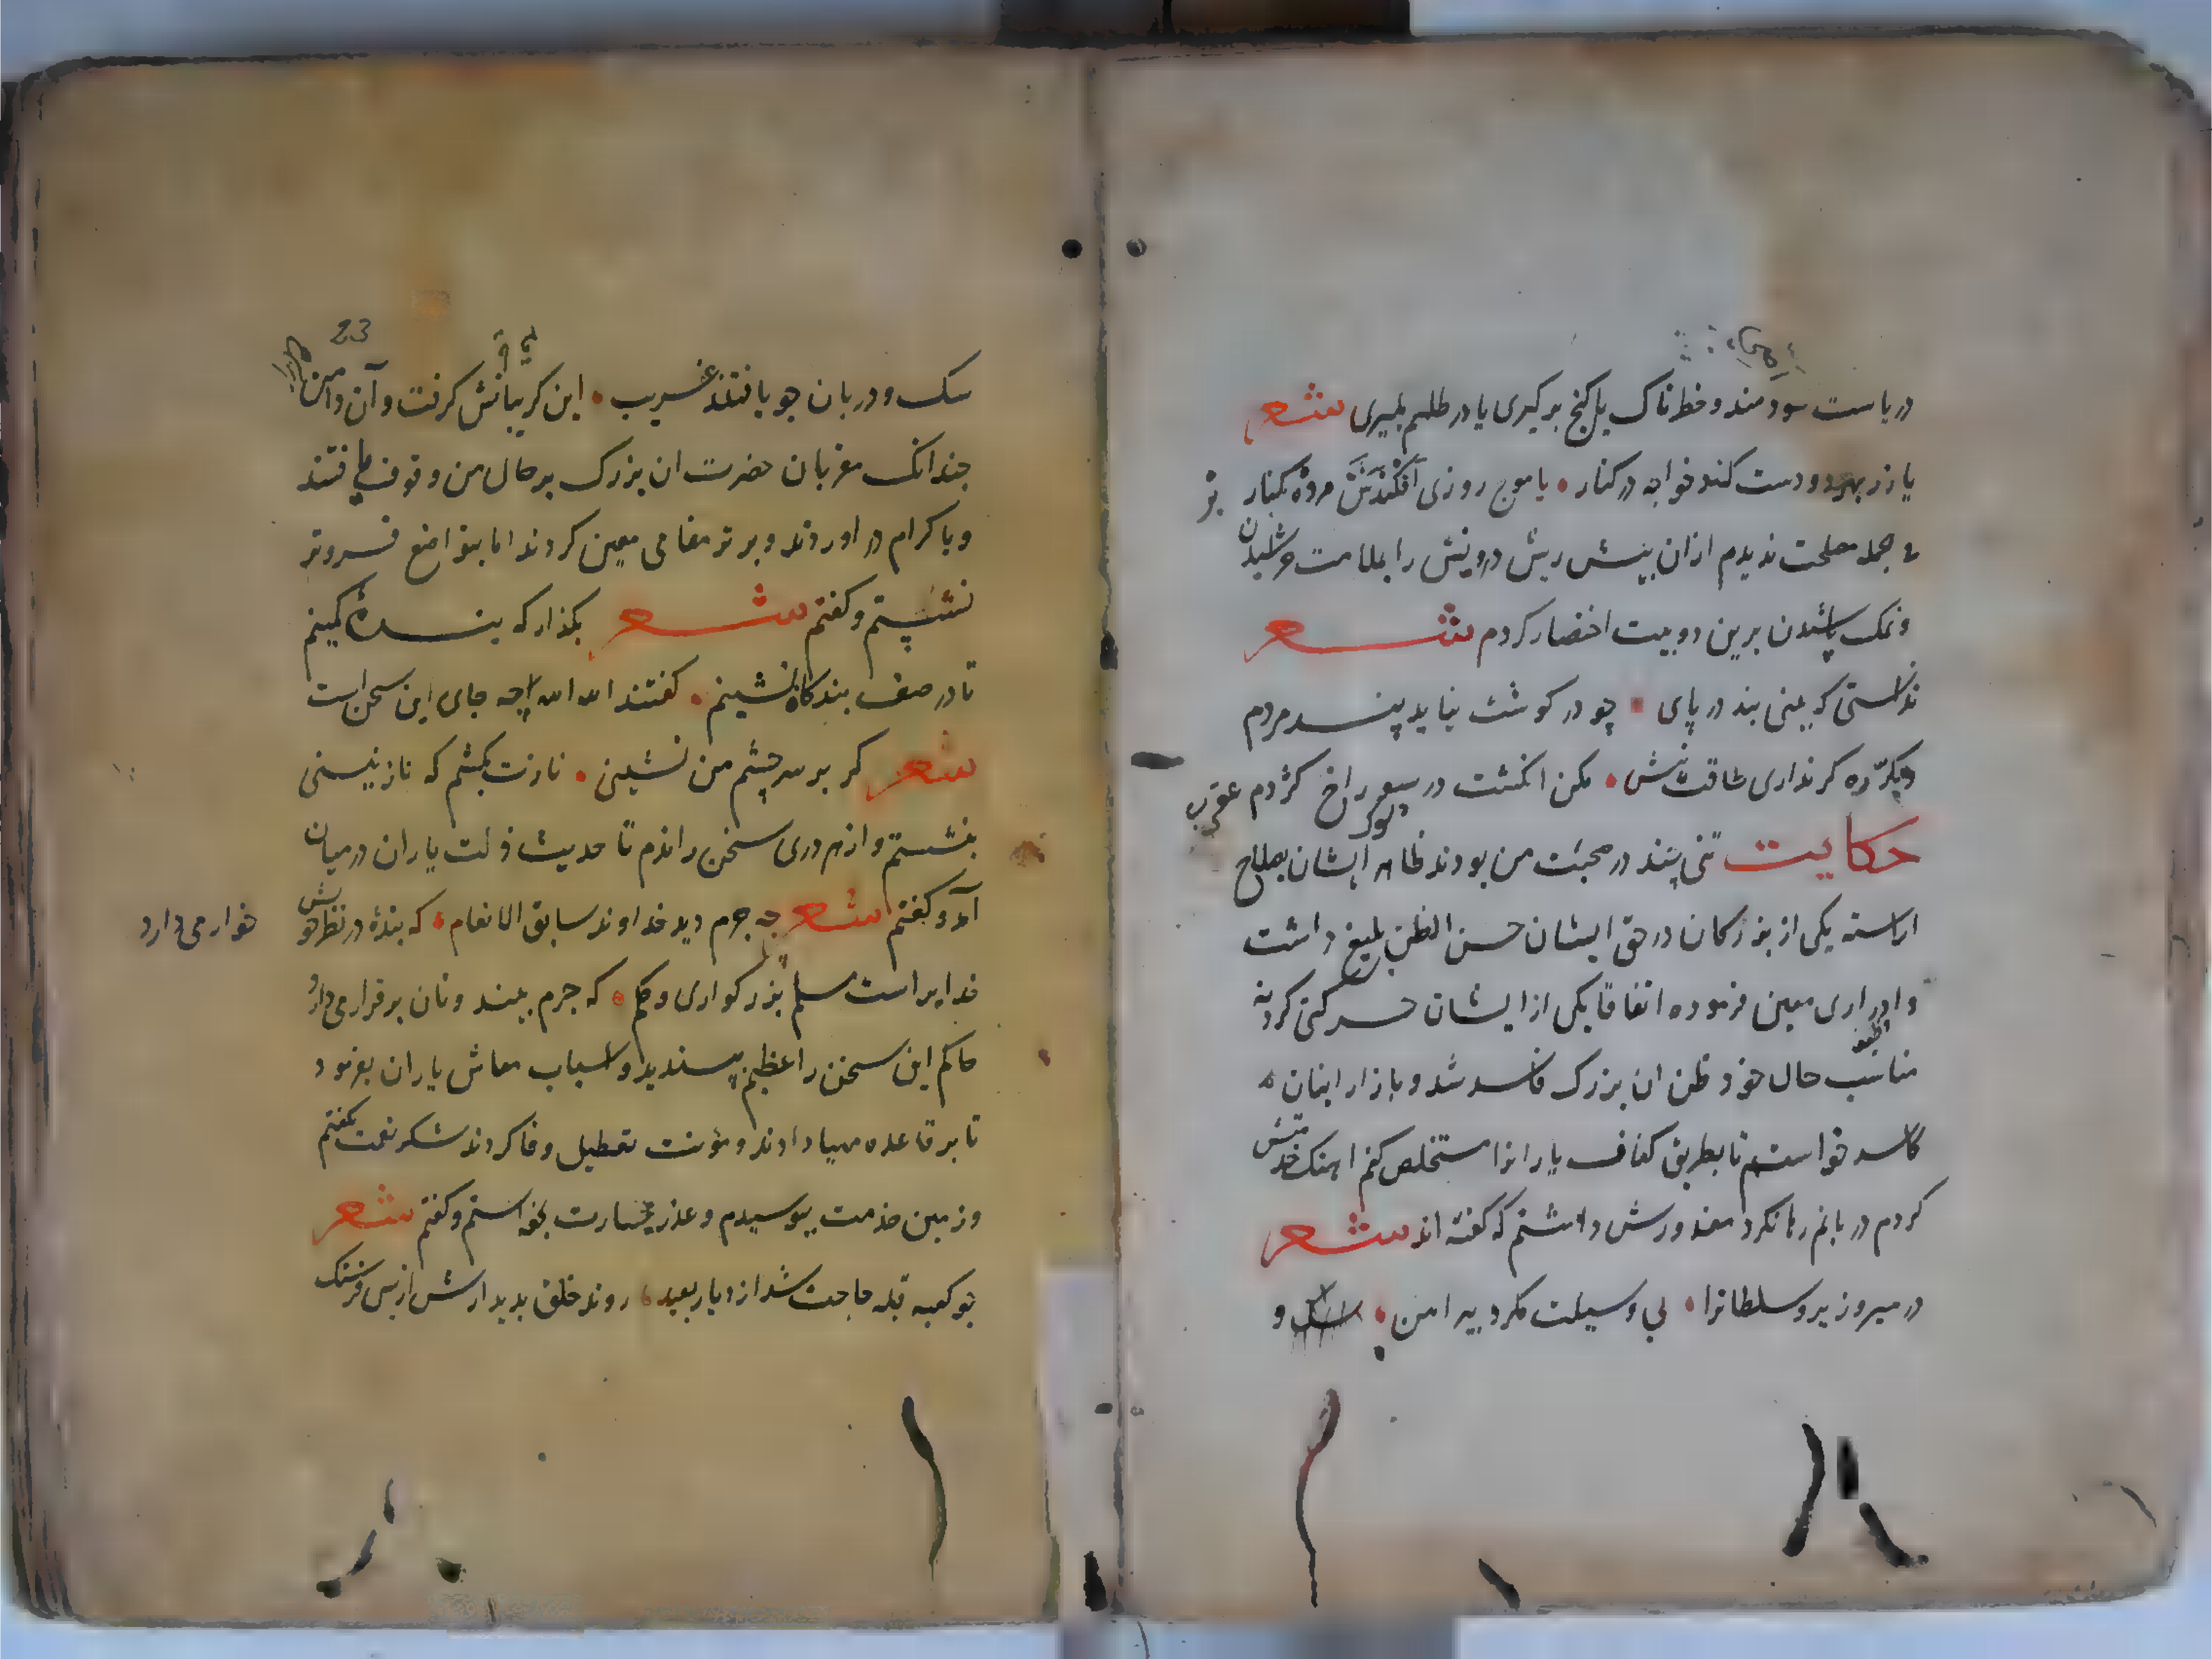 دریاست سودمند و خطرناک یا کنج برکیری یا در طلسم بمیری شعر
یا زر بهر دو دست کند خواجه در کنار • یا موج روزی افکندش مرده بر کنار
مصلحت ندیدم ازان بیش ریش درویش را بملامت خراشیدن
و نمک پاشیدن برین دو بیت اختصار کردم شعر
ندانستی که بینی بند در پای • چو در کوشت نیاید پند مردم
دیکر ره کر نداری طاقت نیش • مکن انکشت در سوراخ کژدم عقرب
حکایت تنی چند در صحبت من بودند ظاهر ایشان بصلاح
اراسته یکی از بزرکان در حق ایشان حسن الظن بلیغ داشت
و ادراری معین فرموده اتفاقا یکی از ایشان حرکتی کرد نه
مناسب حال خود ظن ان بزرک فاسد شد و بازار اینان
کاسد خواستم تا بطریق کفاف یارانرا مستخلص کنم اهنک خدمتش
کردم دربانم رها نکرد معذورش داشتم که کفته اند شعر
در میر و زیر و سلطانرا • بی وسیلت مکرد پیرامن • سک و
23
سک و دربان چو یافتند غریب • این کریبانش کرفت و آن دامن
چندانک مقربان حضرت ان بزرک بر حال من وقوف یافتند
و باکرام در اوردند و برتر مقامی معین کردند اما بتواضع فروتر
نشستم و کفتم شعر بکذار که بنده کمینم
تا در صف بندکان نشینم • کفتند الله الله چه جای این سخن است
شعر کر بر سر چشم من نشینی • نازت بکشم که نازنینی
بنشستم و از هر دری سخن راندم تا حدیث ذلت یاران در میان
آمد و کفتم شعر چه جرم دید خداوند سابق الانعام • که بنده در نظر خویش خوار می دارد
خدایراست مسلم بزرکواری و حکم • که جرم بیند و نان برقرار می دارد
حاکم این سخن را عظیم پسندید و اسباب معاش یاران بفرمود
تا بر قاعده مهیا دادند و مؤنت تعطیل وفا کردند شکر نعمت بکفتم
و زمین خدمت ببوسیدم و عذر جسارت بخواستم و کفتم شعر
چو کعبه قبله حاجت شد از دیار بعید • روند خلق بدیدارش از بس فرسنک